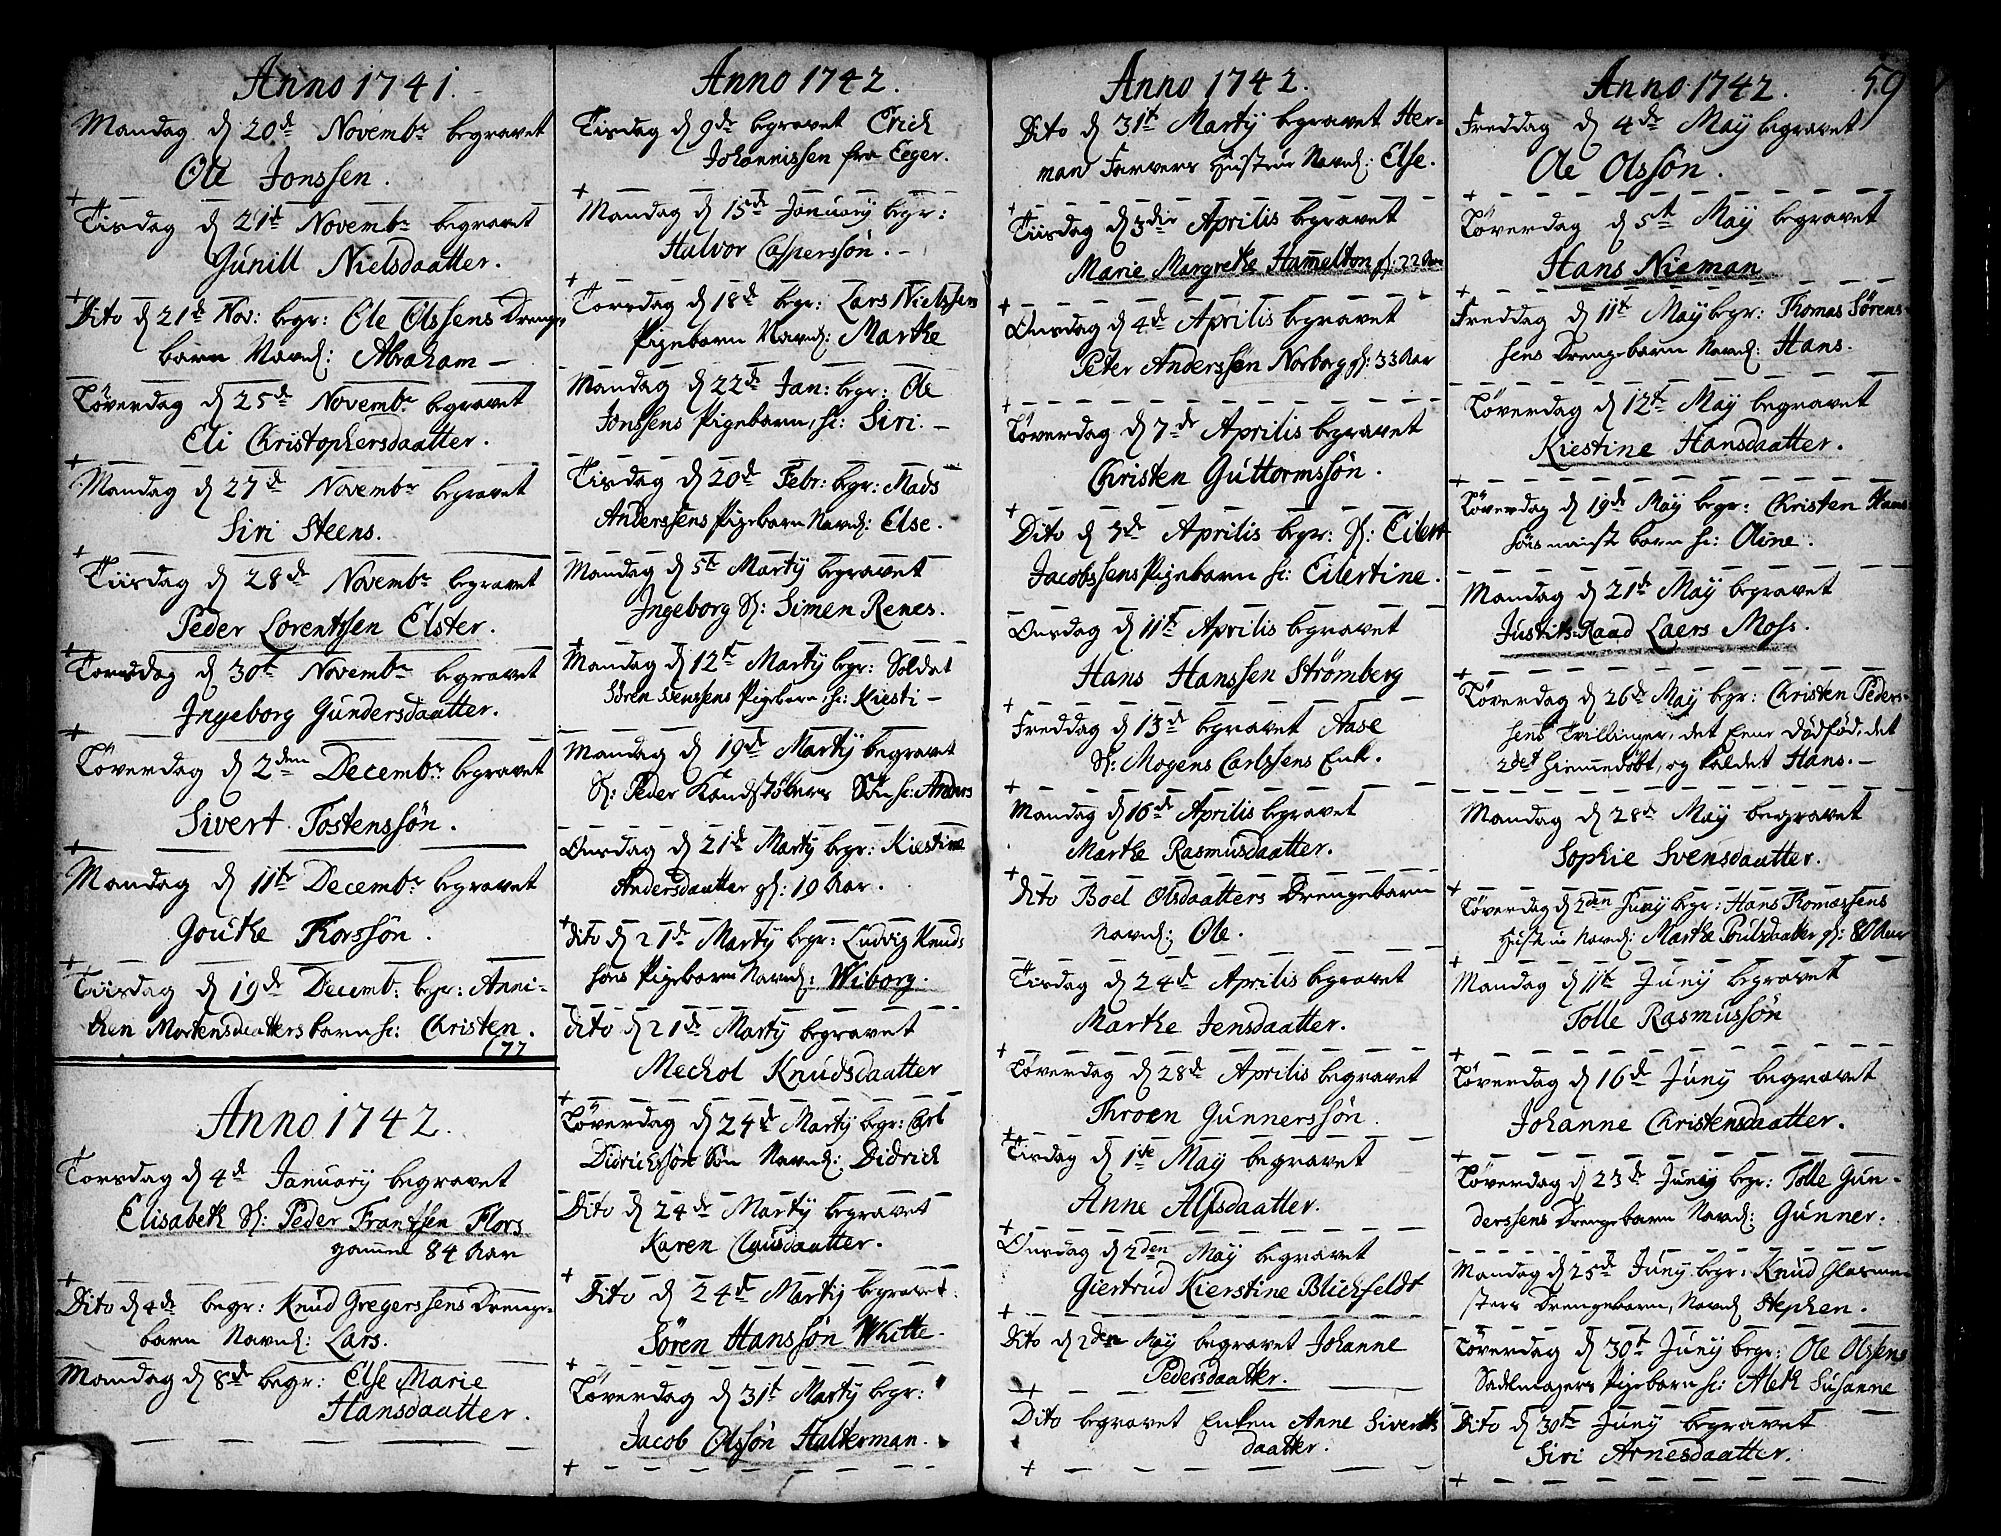 Anno 1741.
Mandag d. 20de Novembr begravet
Ole Jonssen.
Tisdag d. 21de Novembr begravet
Gunill Nielsdaatter.
Dito d. 21de Nov: begr: Ole Olssens Drenge
barn Navnl: Abraham –
Löverdag d. 25de Novembr begravet
Eli Christophersdaatter.
Mandag d. 27de Novembr begravet
Siri Steens.
Tiisdag d. 28de Novembr begravet
Peder Lorentzsen Elster.
Torsdag d. 30t Novembr begravet
Ingeborg Gundersdaatter.
Löverdag d. 2den Decembr begravet
Sivert Tostenssön.
Mandag d. 11te Decembr begravet
Goutke Torssön.
Tiisdag d. 19de Decemb: begr: Anni-
chen Mortensdaatters barn h: Christen.
177
Anno 1742.
Torsdag d. 4de January begravet
Elisabeth Sl: Peder Frantzsen Flors
gammel 84 Aar
Dito d. 4de begr: Knud Gregerssens Drenge-
barn Navnl: Lars.
Mandag d. 8de begr: Else Marie
Hansdaatter.
Anno 1742.
Tisdag d. 9de begravet Erich
Johannissen fra Eeger.
Mandag d. 15de January begr:
Halvor Casperssön. –
Torsdag d. 18de begr: Lars Nielssen
Pigebarn Navnl: Marthe
Mandag d. 22de Jan: begr: Ole
Jonssens Pigebarn, h: Siri. –
Tisdag d. 20de Febr: begr: Mads
Anderssens Pigebarn Navnl: Else.
Mandag d. 5te Marty begravet
Ingeborg Sl: Simen Renes.
Mandag d. 12te Marty begr: Soldat
Sören Svenssens Pigebarn h: Kiesti –
Mandag d. 19de Marty begravet
Sl: Peder Kandstöbers Sön h: Anders
Onsdag d. 21de Marty begr: Kiestine
Andersdaatter gl: 19 Aar.
Dito d. 21de Marty begr: Ludvig Knud-
söns Pigebarn Navnl: Wiborg.
Dito d. 21de Marty begravet
Mechol Knudsdaatter
Löverdag d. 24de Marty begr: Carl
Didrichssön Sön Navnl: Didrich
Dito d. 24de Marty begravet
Karen Clausdaatter.
Dito d. 24de Marty begravet.
Sören Hanssön Whitte.
Löverdag d. 31t Marty begr:
Jacob Olssön Halterman.
Anno 1742.
Dito d. 31t Marty begravet Her-
man Farvers Hustrue Navnl: Else.
Tiisdag d. 3die Aprilis begravet
Marie Margrethe Hammelton gl: 22 Aar
Onsdag d. 4de Aprilis begravet
Peter Anderssen Norborg gl: 33 Aar
Löverdag d. 7de Aprilis begravet
Christen Guttormssön.
Dito d. 7de Aprilis begr: Sl: Eilert
Jacobssens Pigebarn h: Eilertine.
Onsdag d. 11te Aprilis begravet
Hans Hanssen Strömberg
Freddag d. 13de begravet Aase
Sl: Mogens Carlssens Enke.
Mandag d. 16de Aprilis begravet
Marthe Rasmusdaatter.
Dito Boel Olsdaatters Drengebarn
Navnl: Ole.
Tisdag d. 24de Aprilis begravet
Marthe Jensdaatter.
Löverdag d. 28de Aprilis begravet
Throen Gunnerssön.
Tisdag d. 1ste May begravet
Anne Alfsdaatter.
Onsdag d. 2den May begravet
Giertrud Kierstine Blichfeldt
Dito d. 2den May begravet Johanne
Pedersdaatter.
Dito begravet Enken Anne Siverts
daatter.
59
Anno 1742.
Freddag d. 4de May begravet
Ole Olssön.
Löverdag d. 5te May begravet
Hans Nieman
Freddag d. 11te May begr: Thomas Sörens-
sens Drengebarn Navnl: Hans.
Löverdag d. 12te May begravet
Kiestine Hansdaatter.
Löverdag d. 19de May begr: Christen Hans
söns barn h: Oline.
Mandag d. 21de May begravet
Justits-Raad Laers Moss.
Löverdag d. 26de May begr: Christen Peder-
sens Tvillinger, det Eene Dödföd, det
2det hiemmedöbt, og kaldet Hans. –
Mandag d. 28de May begravet
Sophie Svensdaatter.
Löverdag d. 2den Juny begr: Hans Thomæssens
Hustrue Navnl: Marthe Poulsdaatter gl: 80 Aar
Mandag d. 11te Juny begravet
Tolle Rasmussön
Löverdag d. 16de Juny begravet
Johanne Christensdaatter.
Löverdag d. 23de Juny begr: Tolle Gun-
derssens Drengebarn Navnl: Gunner.
Mandag d. 25de Juny begr: Knud Glasme-
sters Drengebarn, Navnl Stephen.
Löverdag d. 30te Juny begr: Ole Olssens
Sadelmagers Pigebarn h: Aleth Susanne
Dito d. 30te Juny begravet
Siri Arnesdaatter.